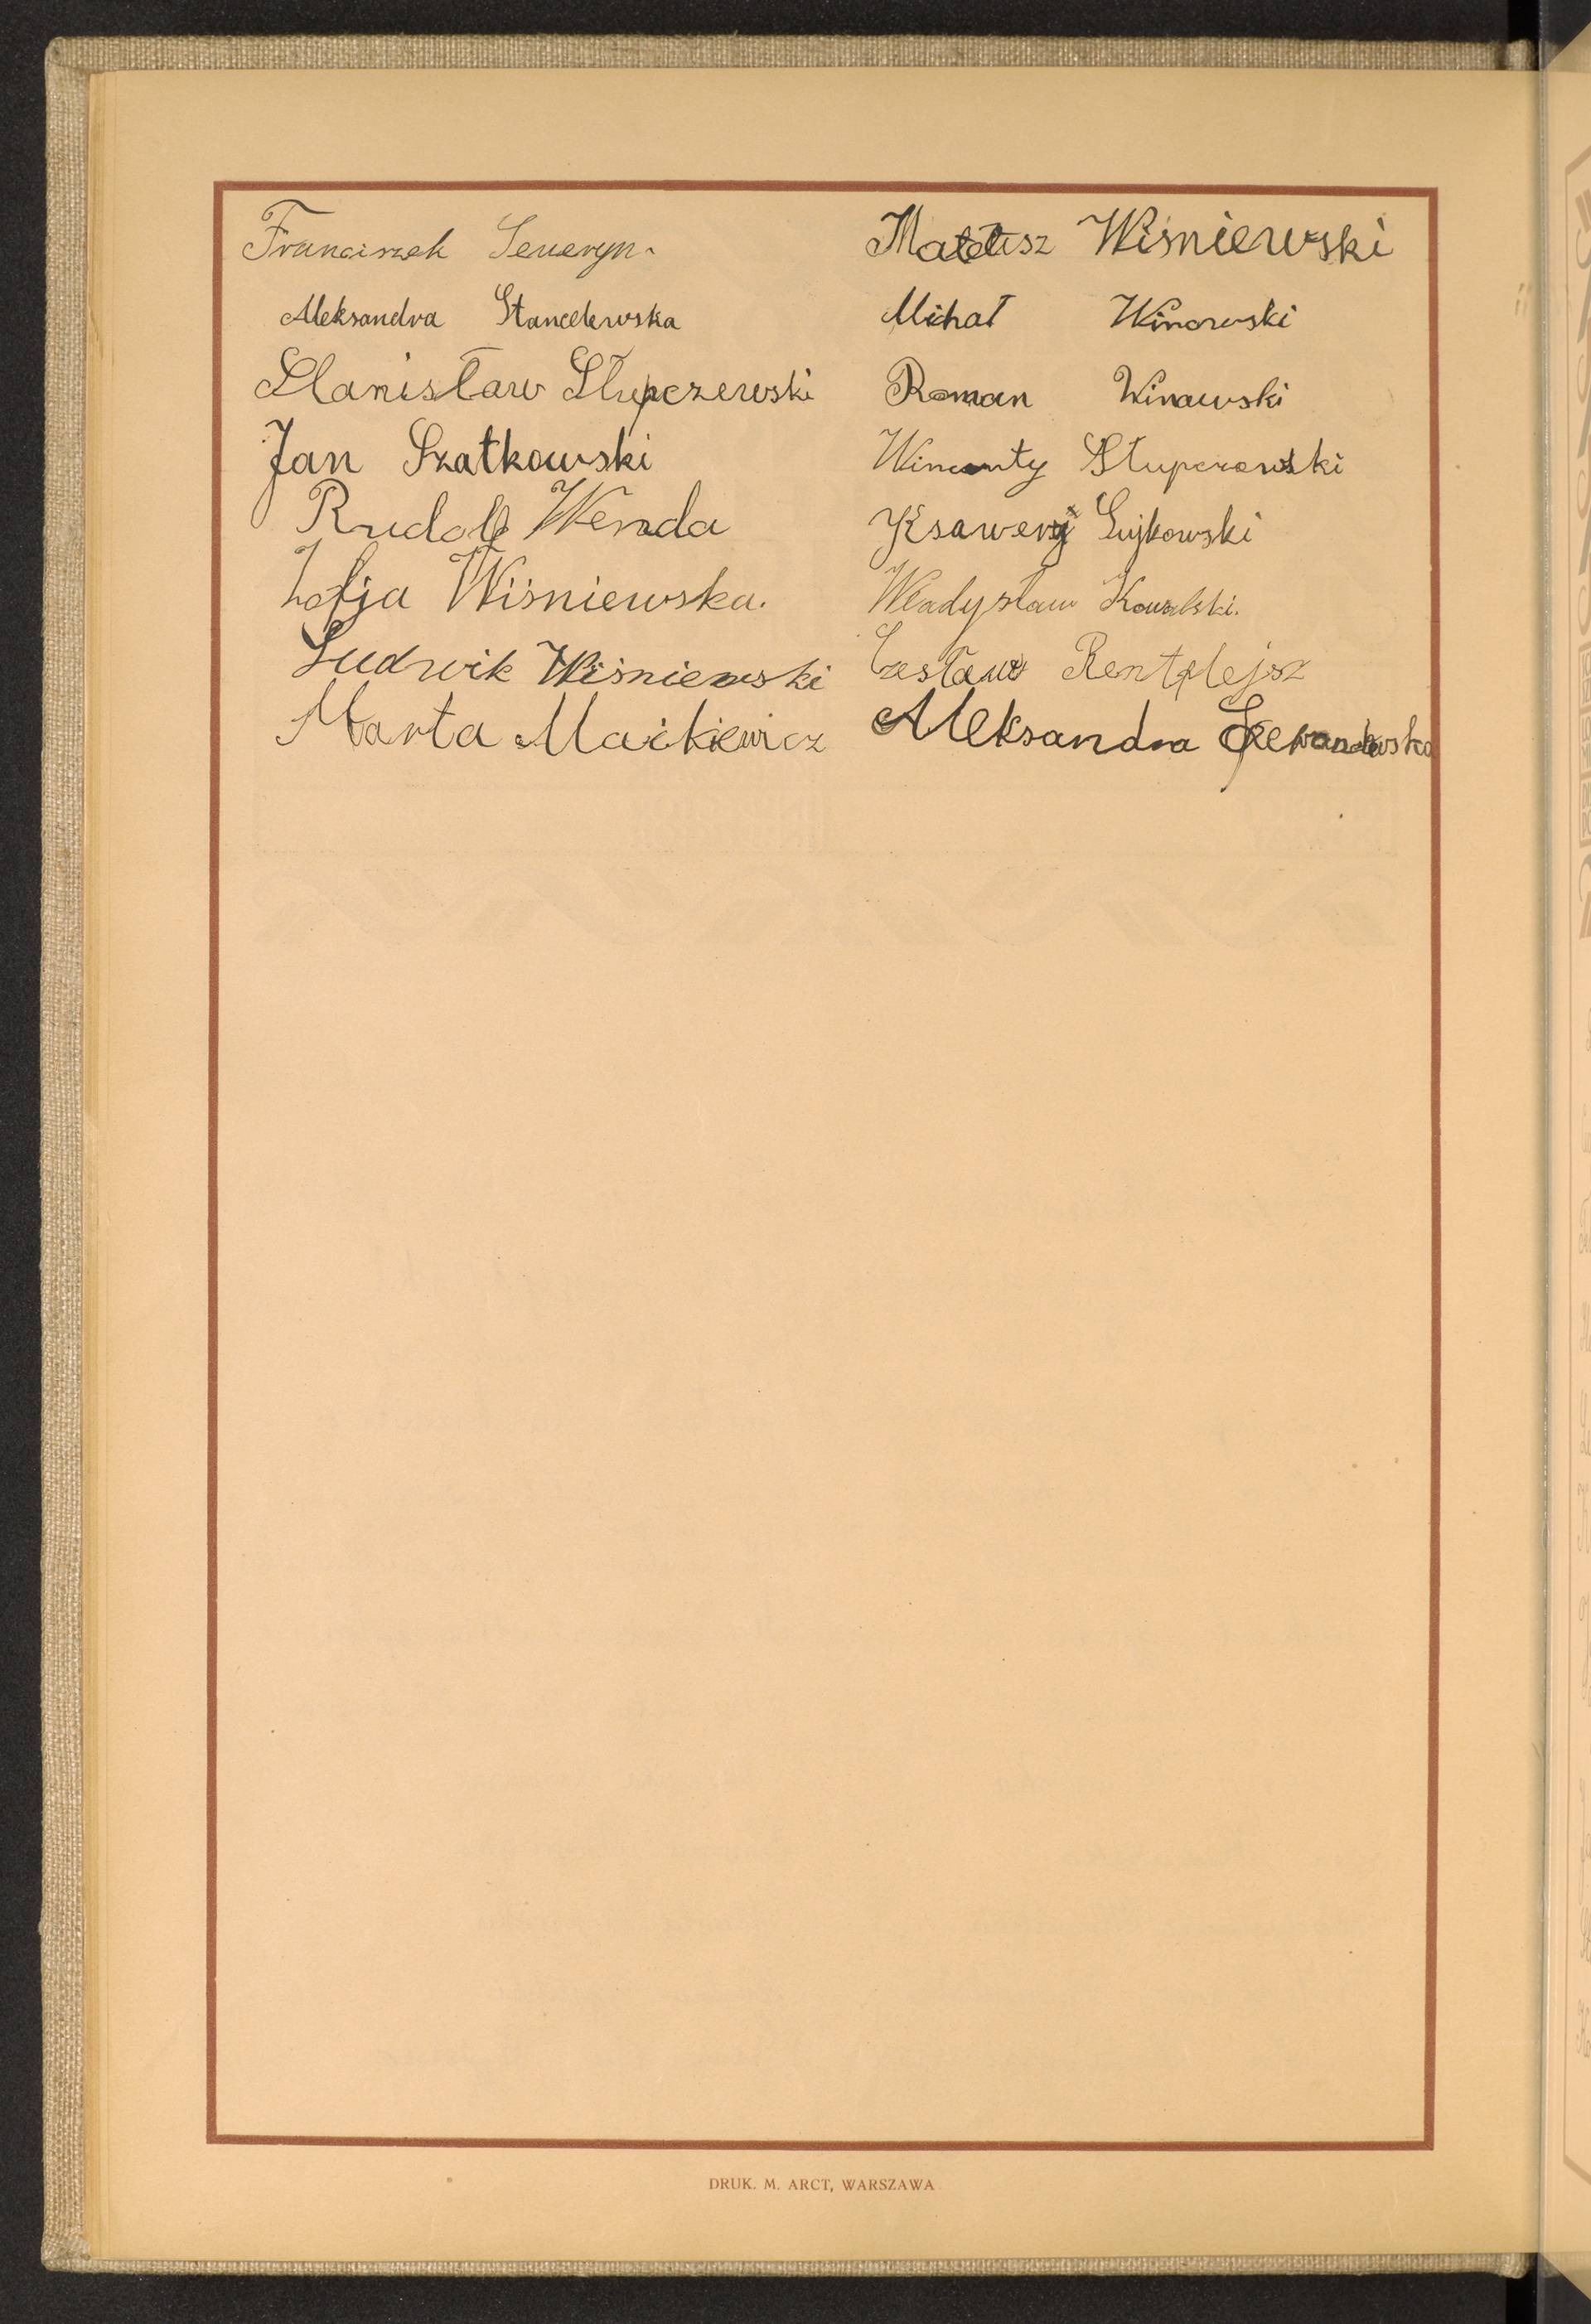 Franciszek Seweryn
Aleksandra Stancelewska
Stanisław Słupczewski
Jan Szatkowski
Rudolf Wenda
Zofja Wiśniewska.
Ludwik Wiśniewski
Marta Maćkiewicz
Mateusz Wiśniewski
Michał Winowski
Roman Winowski
Wincenty Słupczewski
Ksawery Gujkowski
Władysław Kowalski.
Czesław
Aleksandra Lewandowska
DRUK. M. ARCT, WARSZAWA